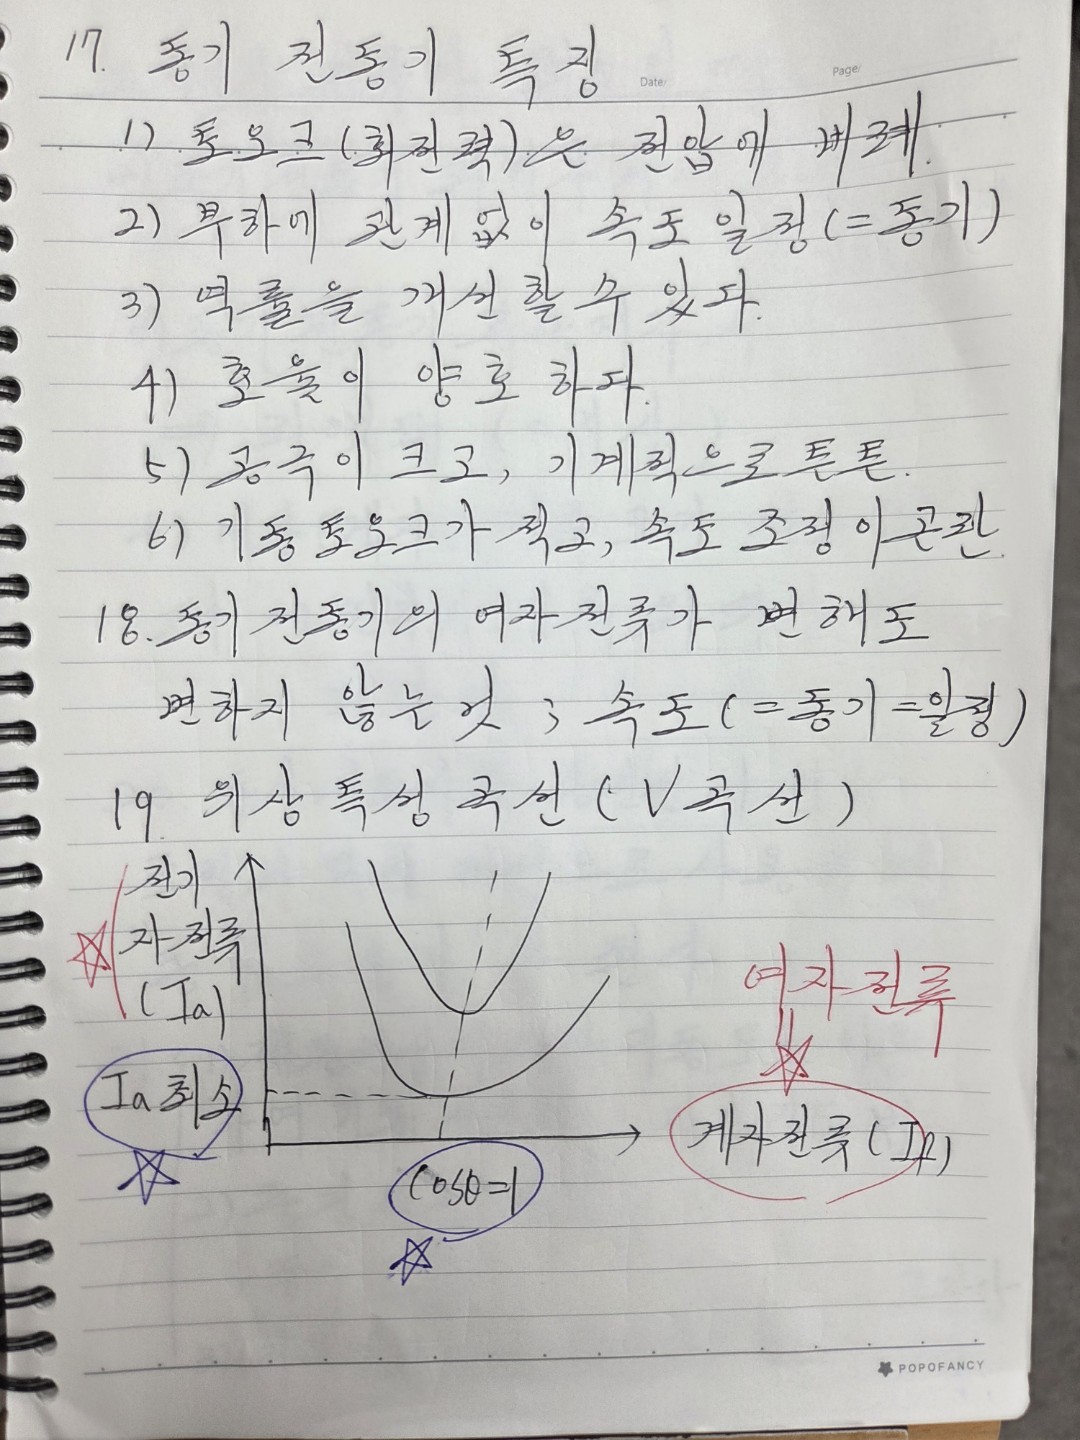 17. 동기 전동기 특징
Date/
Page/
1) 토오크(회전력)은 전압에 비례.
2) 부하에 관계없이 속도일정(=동기)
3) 역률을 개선할 수 있다.
4) 효율이 양호하다.
5) 공극이 크고, 기계적으로 튼튼.
6) 기동토오크가 적고, 속도 조정이 곤란.
18. 동기 전동기의 여자전류가 변해도
변하지 않는것 ; 속도(=동기=일정)
19. 위상특성곡선(V곡선)
전기
자전류
(Ia)
여자전류
Ia 최소
계자전류(If)
Cosθ=1
POPOFANCY